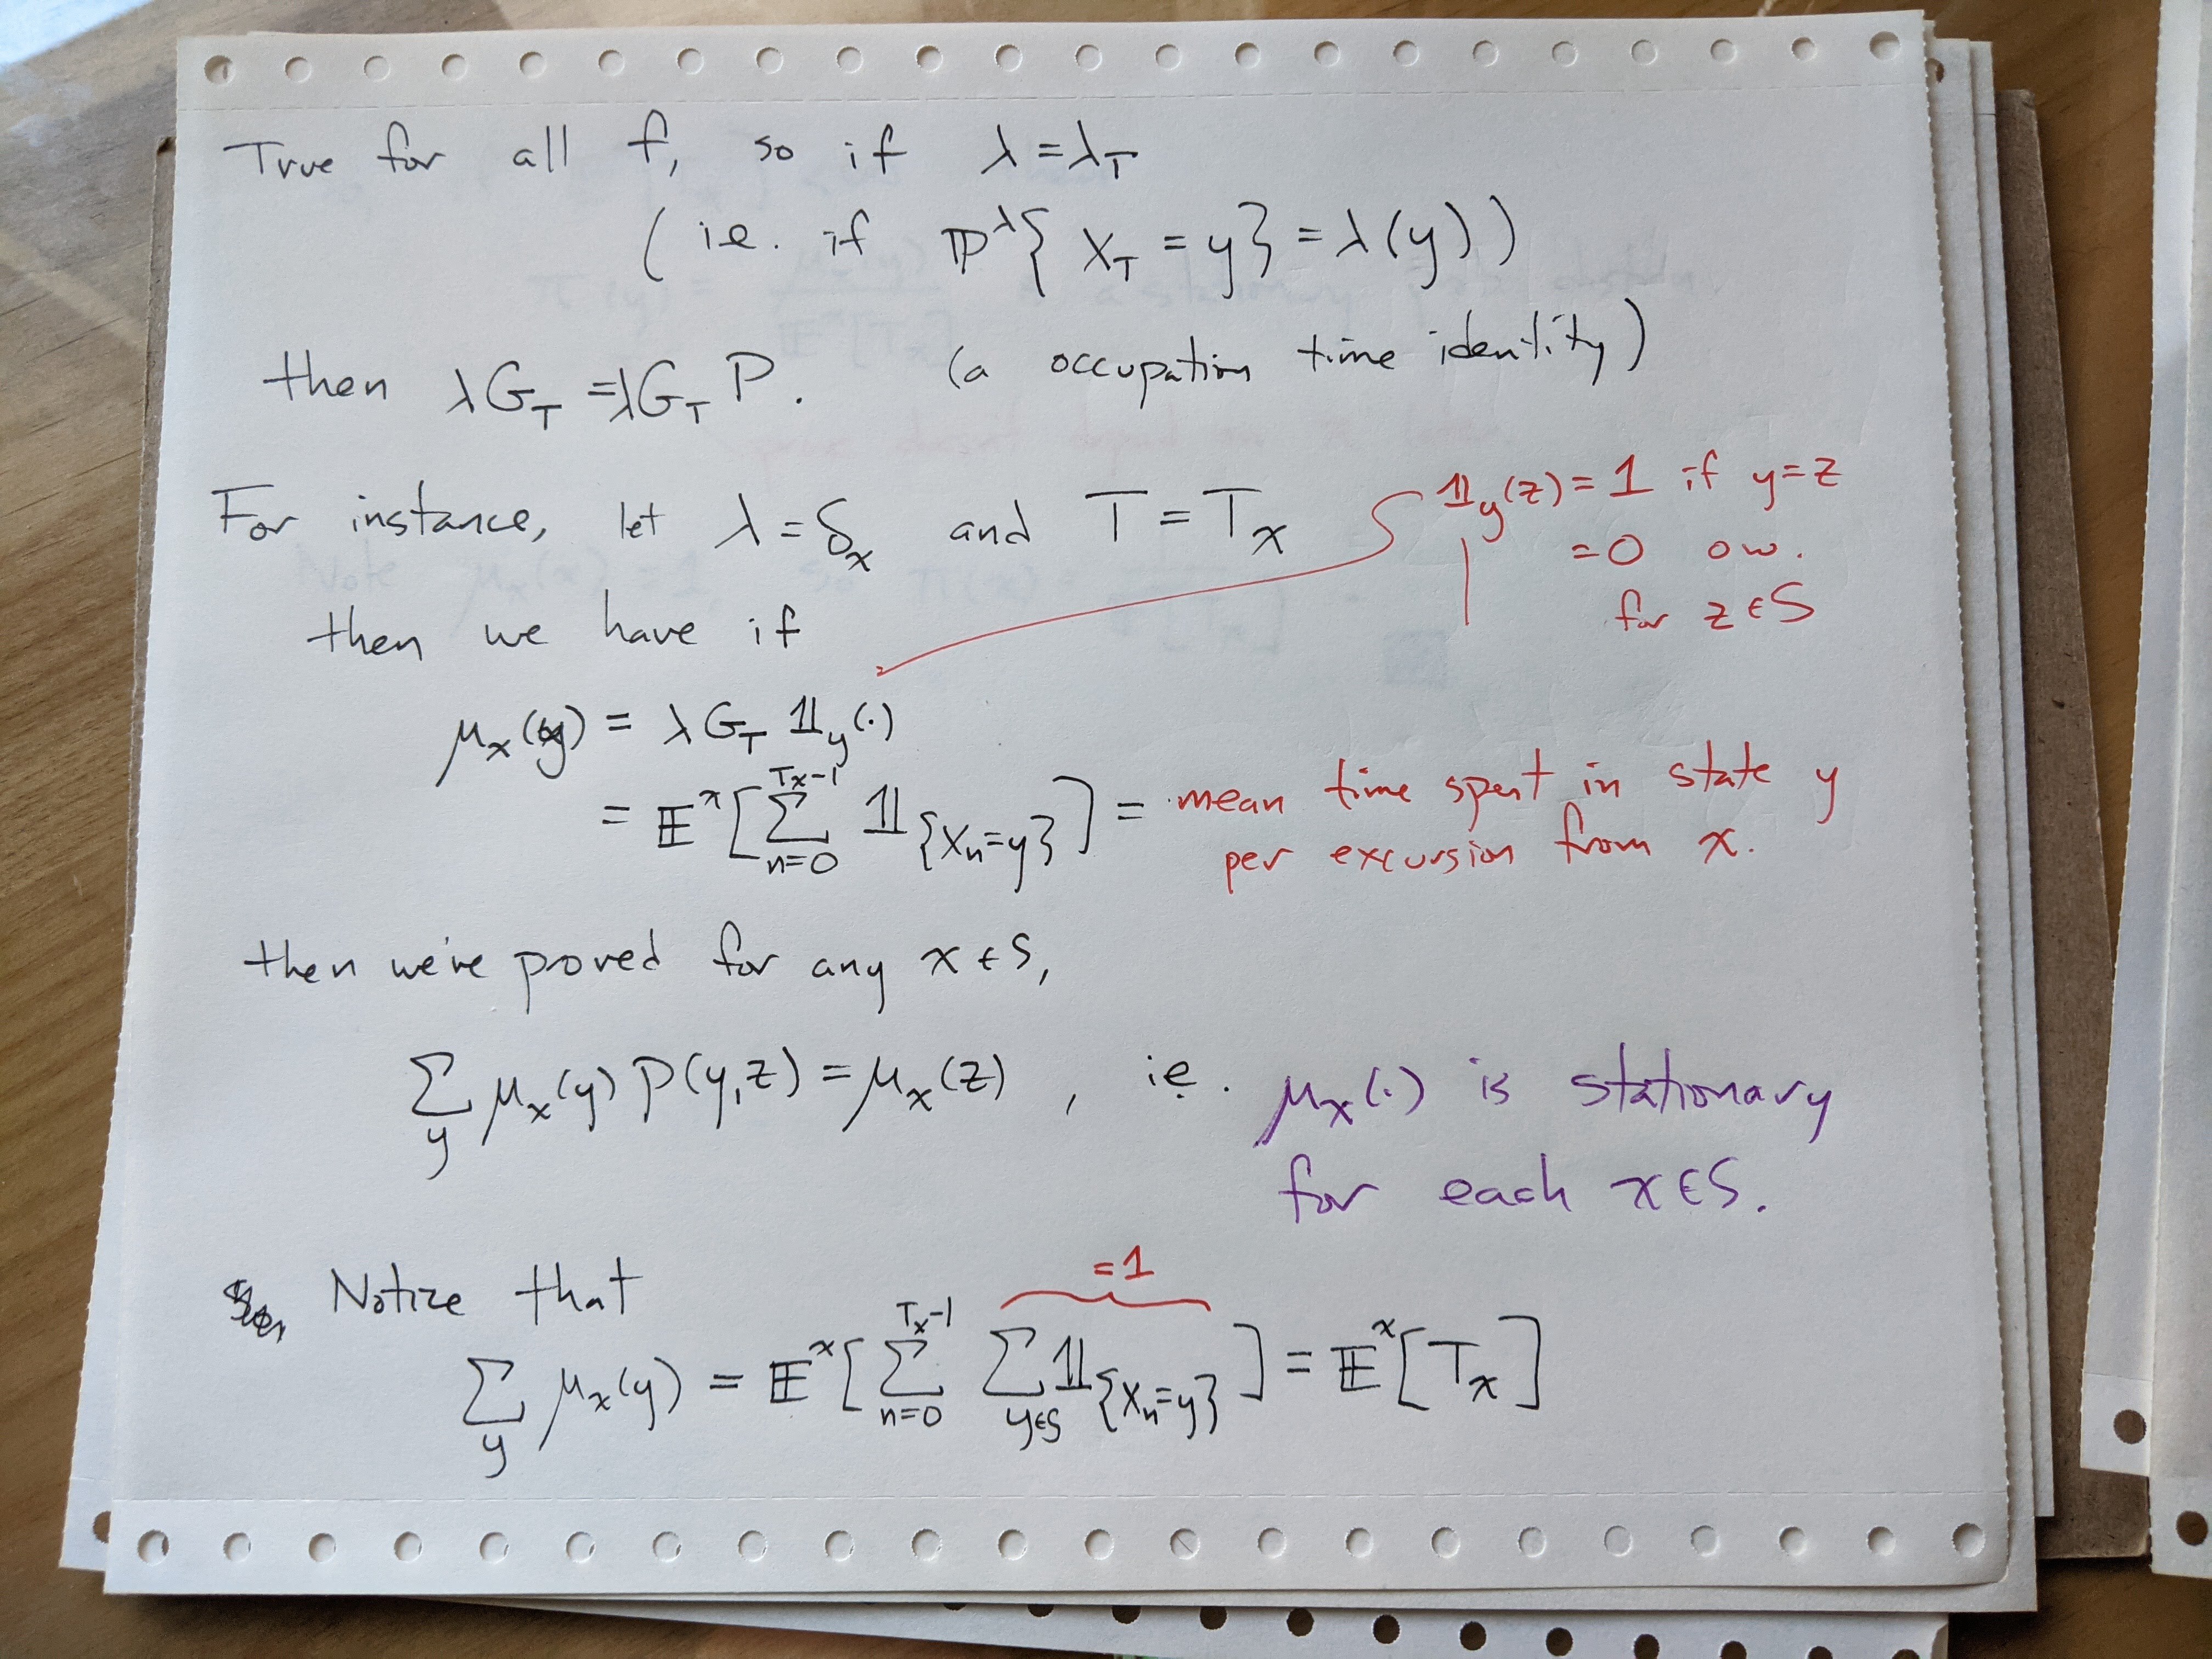 True for all f, so if λ = λ_T
(ie. if ℙ^λ{ X_T = y} = λ(y))
then λG_T = λG_T P. (a occupation time identity)
For instance, let λ = δ_x and T = T_x
𝟙_y(z) = 1 if y=z
= 0 ow.
for z ∈ S
then we have if
μ_x(y) = λ G_T 𝟙_y(·)
= 𝔼^x[ Σ_{n=0}^{T_x-1} 𝟙_{X_n=y} ] = mean time spent in state y
per excursion from x.
then we've proved for any x ∈ S,
Σ_y μ_x(y) P(y,z) = μ_x(z) , ie. μ_x(·) is stationary
for each x ∈ S.
= 1
Notice that
Σ_y μ_x(y) = 𝔼^x[ Σ_{n=0}^{T_x-1} Σ_{y∈S} 𝟙_{X_n=y} ] = 𝔼^x[T_x]